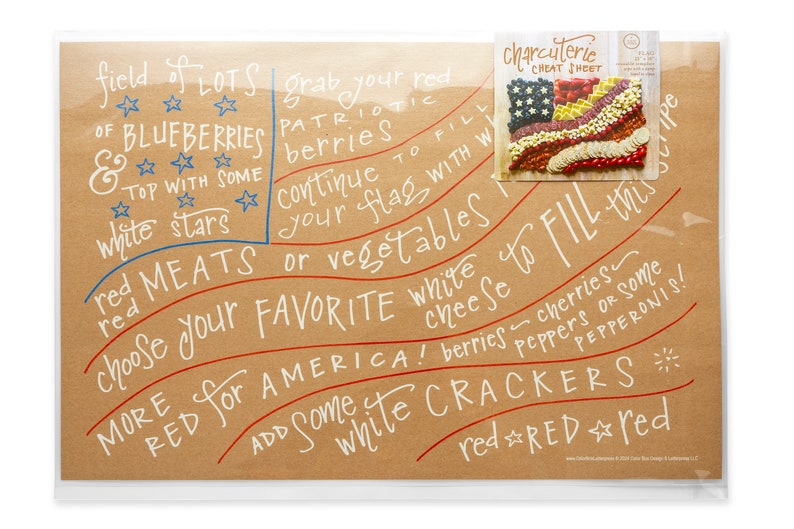 field of LOTS
OF BLUEBERRIES
& TOP WITH SOME
white stars
grab your red
PATRIOTIC
berries
continue TO FILL
your flag WITH
charcuterie
CHEAT SHEET
FLAG
reusable template
red MEATS or vegetables
red
choose your FAVORITE white cheese to FILL this stripe
MORE RED for AMERICA! berries cherries peppers OR SOME PEPPERONIS!
ADD SOME white CRACKERS
red RED red
© 2024 Color Box Design & Letterpress LLC